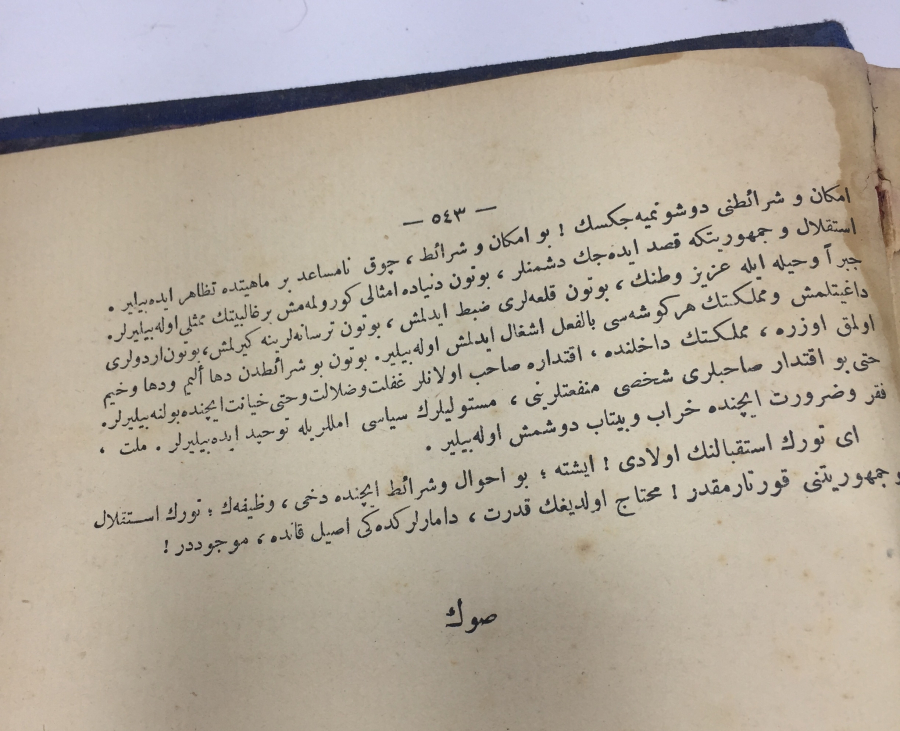 — ٥٤٣ —
امكان و شرائطنی دوشونمیه‌جكسك ! بو امكان و شرائط ، چوق نامساعد بر ماهیتده تظاهر ایده‌بیلیر .
استقلال و جمهوریتكه قصد ایده‌جك دشمنلر ، بوتون دنیاده امثالی كورولمه‌مش بر غالبیتك ممثلی اوله‌بیلیرلر.
جبرآ و حیله ایله عزیز وطنك ، بوتون قلعه‌لری ضبط ایدلمش ، بوتون ترسانه‌لرینه كیرلمش، بوتون اردولری
داغیتلمش و مملكتك هر كوشه‌سی بالفعل اشغال ایدلمش اوله‌بیلیر. بوتون بو شرائطدن دها ألیم ودها وخیم
اولمق اوزره ، مملكتك داخلنده ، اقتداره صاحب اولانلر غفلت و ضلالت و حتی خیانت ایچنده بولنه‌بیلیرلر.
حتی بو اقتدار صاحبلری شخصی منفعتلرینی ، مستولیلرك سیاسی امللریله توحید ایده‌بیلیرلر . ملت ،
فقر و ضرورت ایچنده خراب و بیتاب دوشمش اوله‌بیلیر .
ای تورك استقبالنك اولادی ! ایشته ؛ بو احوال وشرائط ایچنده دخی ، وظیفه‌ك ؛ تورك استقلال
و جمهوریتنی قورتارمقدر ! محتاج اولدیغك قدرت ، دامارلركده‌كی اصیل قانده ، موجوددر !
صوك